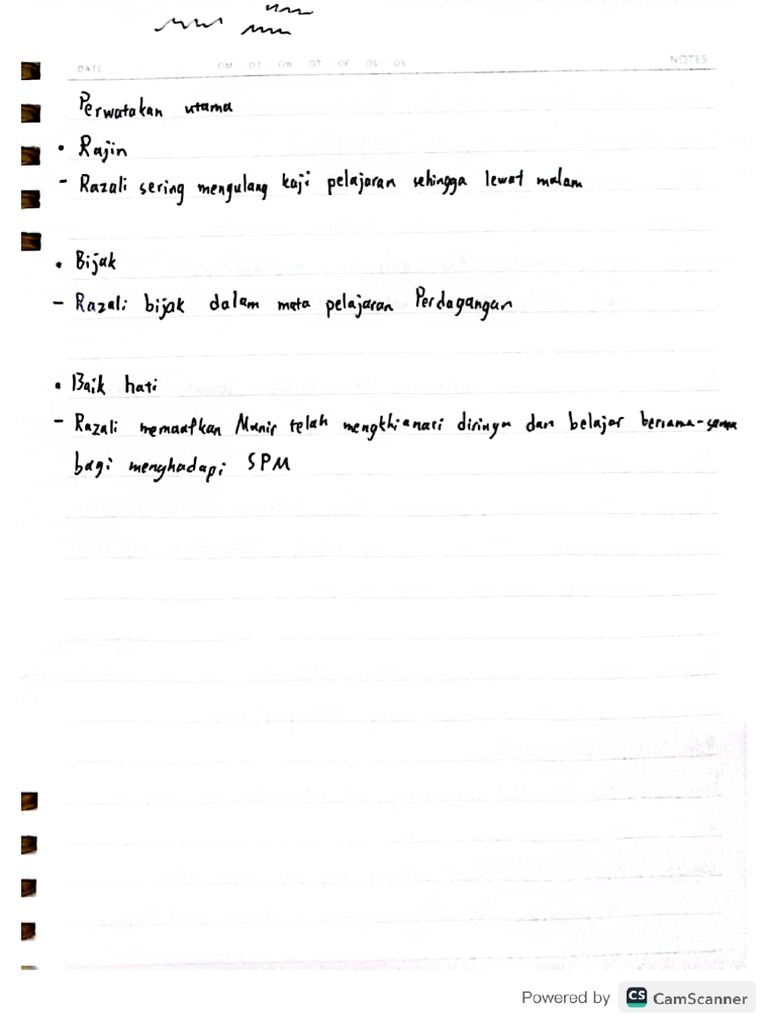 DATE
NOTES
Perwatakan utama
• Rajin
- Razali sering mengulang kaji pelajaran sehingga lewat malam
• Bijak
- Razali bijak dalam mata pelajaran Perdagangan
• Baik hati
- Razali memaafkan Munir telah mengkhianati dirinya dan belajar bersama-sama
bagi menghadapi SPM
Powered by CS CamScanner